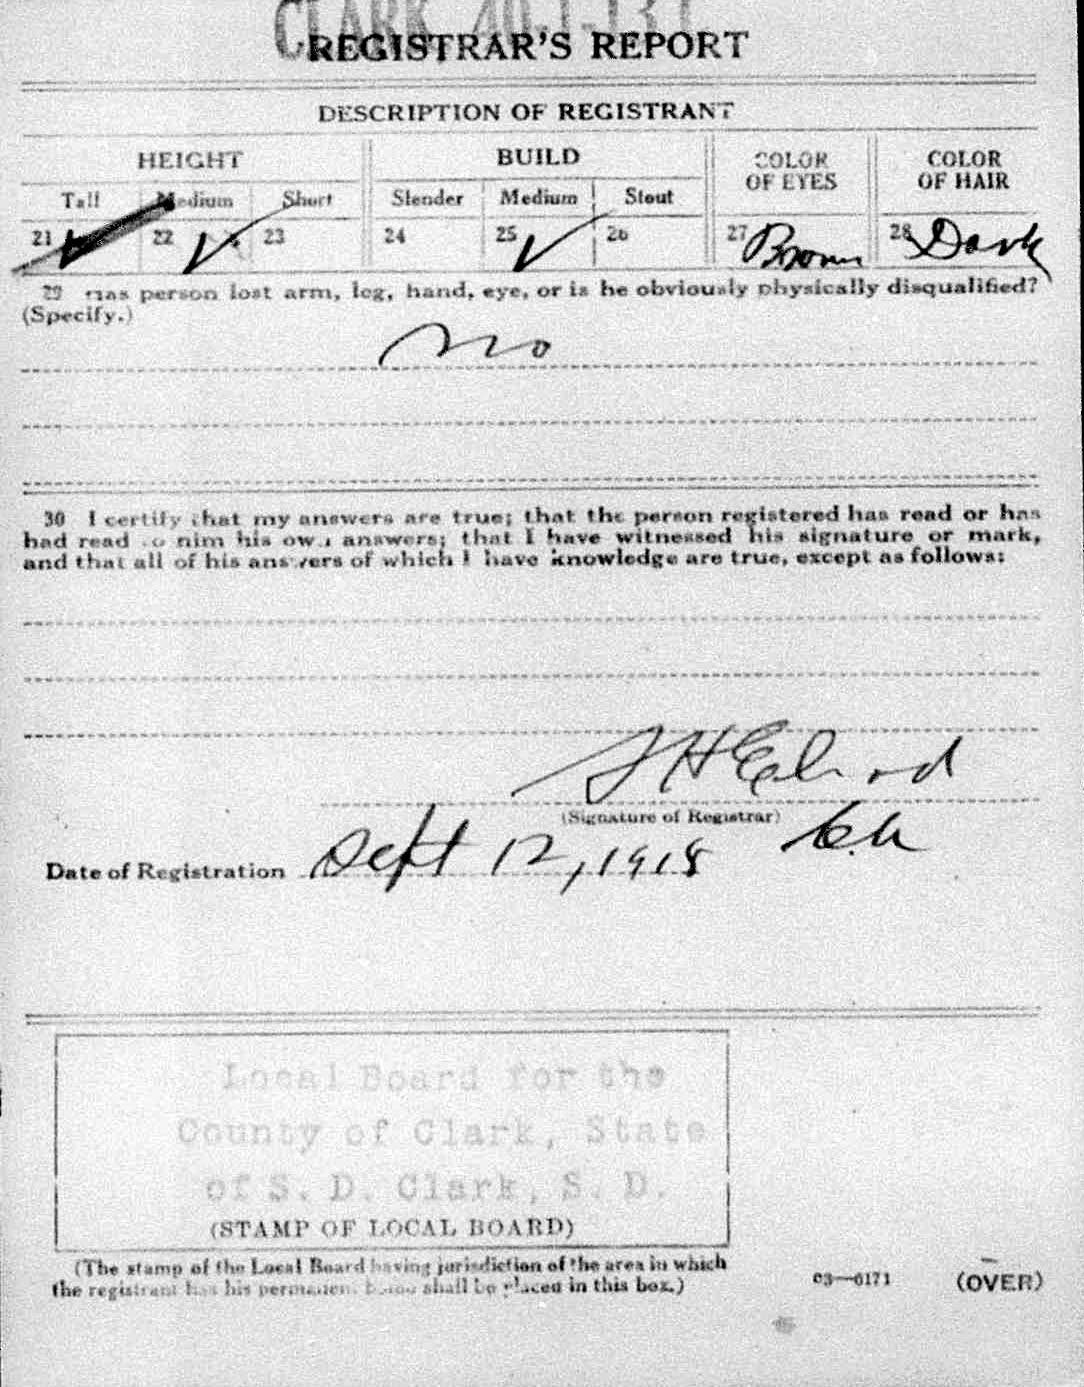 CLARK 40-1-13
REGISTRAR'S REPORT
DESCRIPTION OF REGISTRANT
HEIGHT BUILD COLOR OF EYES COLOR OF HAIR
Tall Medium Short Slender Medium Stout
21 ✓ 22 ✓ 23 24 25 ✓ 26 27 Brown 28 Dark
29 Has person lost arm, leg, hand, eye, or is he obviously physically disqualified?
(Specify.)
No
30 I certify that my answers are true; that the person registered has read or has
had read to him his own answers; that I have witnessed his signature or mark,
and that all of his answers of which I have knowledge are true, except as follows:
(Signature of Registrar)
Date of Registration Sept 12, 1918
Local Board for the
County of Clark, State
of S. D. Clark, S. D.
(STAMP OF LOCAL BOARD)
(The stamp of the Local Board having jurisdiction of the area in which
the registrant has his permanent home shall be placed in this box.)
03—6171 (OVER)